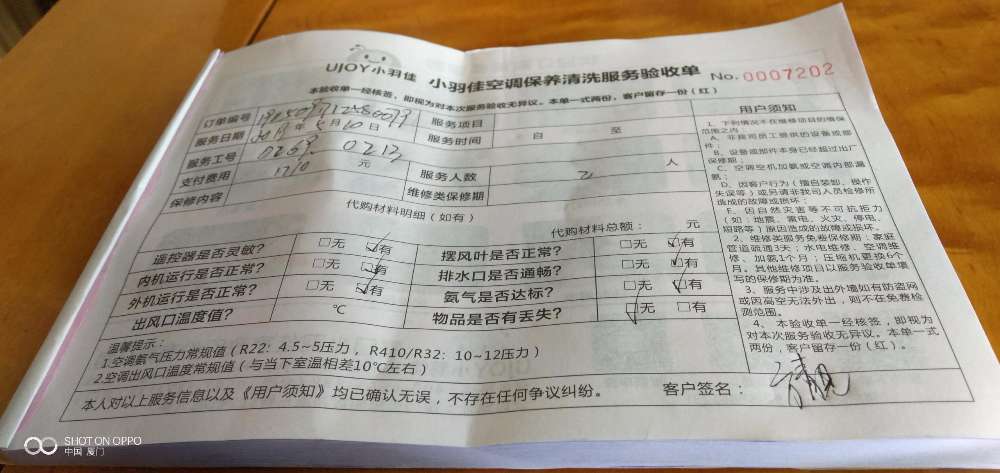 UJOY小羽佳 小羽佳空调保养清洗服务验收单 No. 0007202
本验收单一经核签，即视为对本次服务验收无异议。本单一式两份，客户留存一份（红）
订单编号 服务项目
服务日期 2019年5月10日 服务时间 自 至
服务工号 0269 0213
支付费用 1710 元 服务人数 2 人
保修内容 维修类保修期
代购材料明细（如有）
代购材料总额： 元
遥控器是否灵敏？ □无 ☑有 摆风叶是否正常？ □无 ☑有
内机运行是否正常？ □无 ☑有 排水口是否通畅？ □无 ☑有
外机运行是否正常？ □无 ☑有 氨气是否达标？ □无 ☑有
出风口温度值？ ℃ 物品是否有丢失？ ☑无 □有
温馨提示：
1.空调氨气压力常规值（R22：4.5~5压力，R410/R32：10~12压力）
2.空调出风口温度常规值（与当下室温相差10℃左右）
本人对以上服务信息以及《用户须知》均已确认无误，不存在任何争议纠纷。 客户签名：
用户须知
1、下列情况不在维修项目的保保
范围之内
A、非我司员工提供的设备或部
件；
B、设备或部件本身已经超过出厂
保修期；
C、空调空机加氨或空调内部漏
氨；
D、因客户行为（擅自装卸、操作
失误等）或另请非我司人员检修所
造成的故障或损坏；
E、因自然灾害等不可抗拒力
（如：地震、雷电、火灾、停电、
短路等）原因造成的故障或损坏。
2、维修类服务免费保修期：家庭
管道疏通3天；水电维修、空调维
修、加氨1个月；压缩机更换6个
月。其他维修项目以服务验收单填
写的保修期为准。
3、服务中涉及出外墙如有防盗网
或因高空无法外出，则不在免费检
测范围。
4、本验收单一经核签，即视为
对本次服务验收无异议。本单一式
两份，客户留存一份（红）。
SHOT ON OPPO
中国 厦门